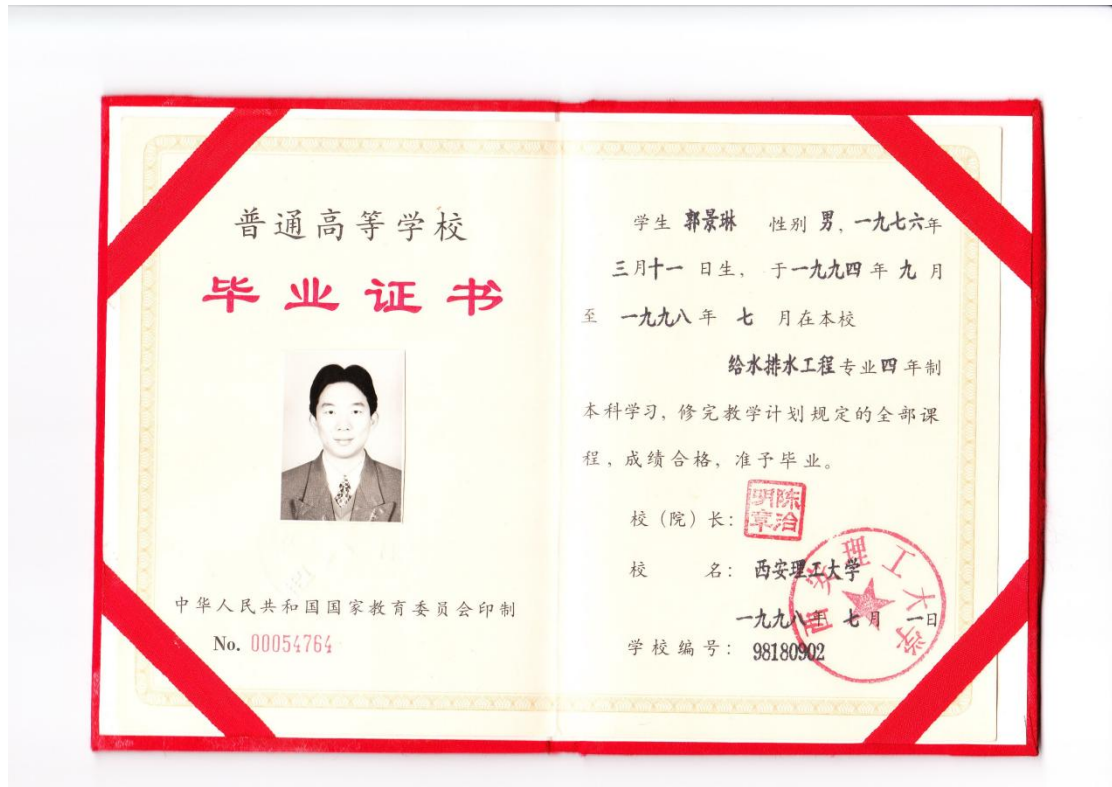 普通高等学校
毕业证书
中华人民共和国国家教育委员会印制
No. 00054764
学生 郭景琳 性别 男, 一九七六年
三月十一 日生, 于一九九四 年 九 月
至 一九九八 年 七 月在本校
给水排水工程 专业 四 年制
本科学习, 修完教学计划规定的全部课
程, 成绩合格, 准予毕业。
校（院）长: 陈治明章
校 名: 西安理工大学
西安理工大学
一九九八年 七 月 一日
学校编号: 98180902